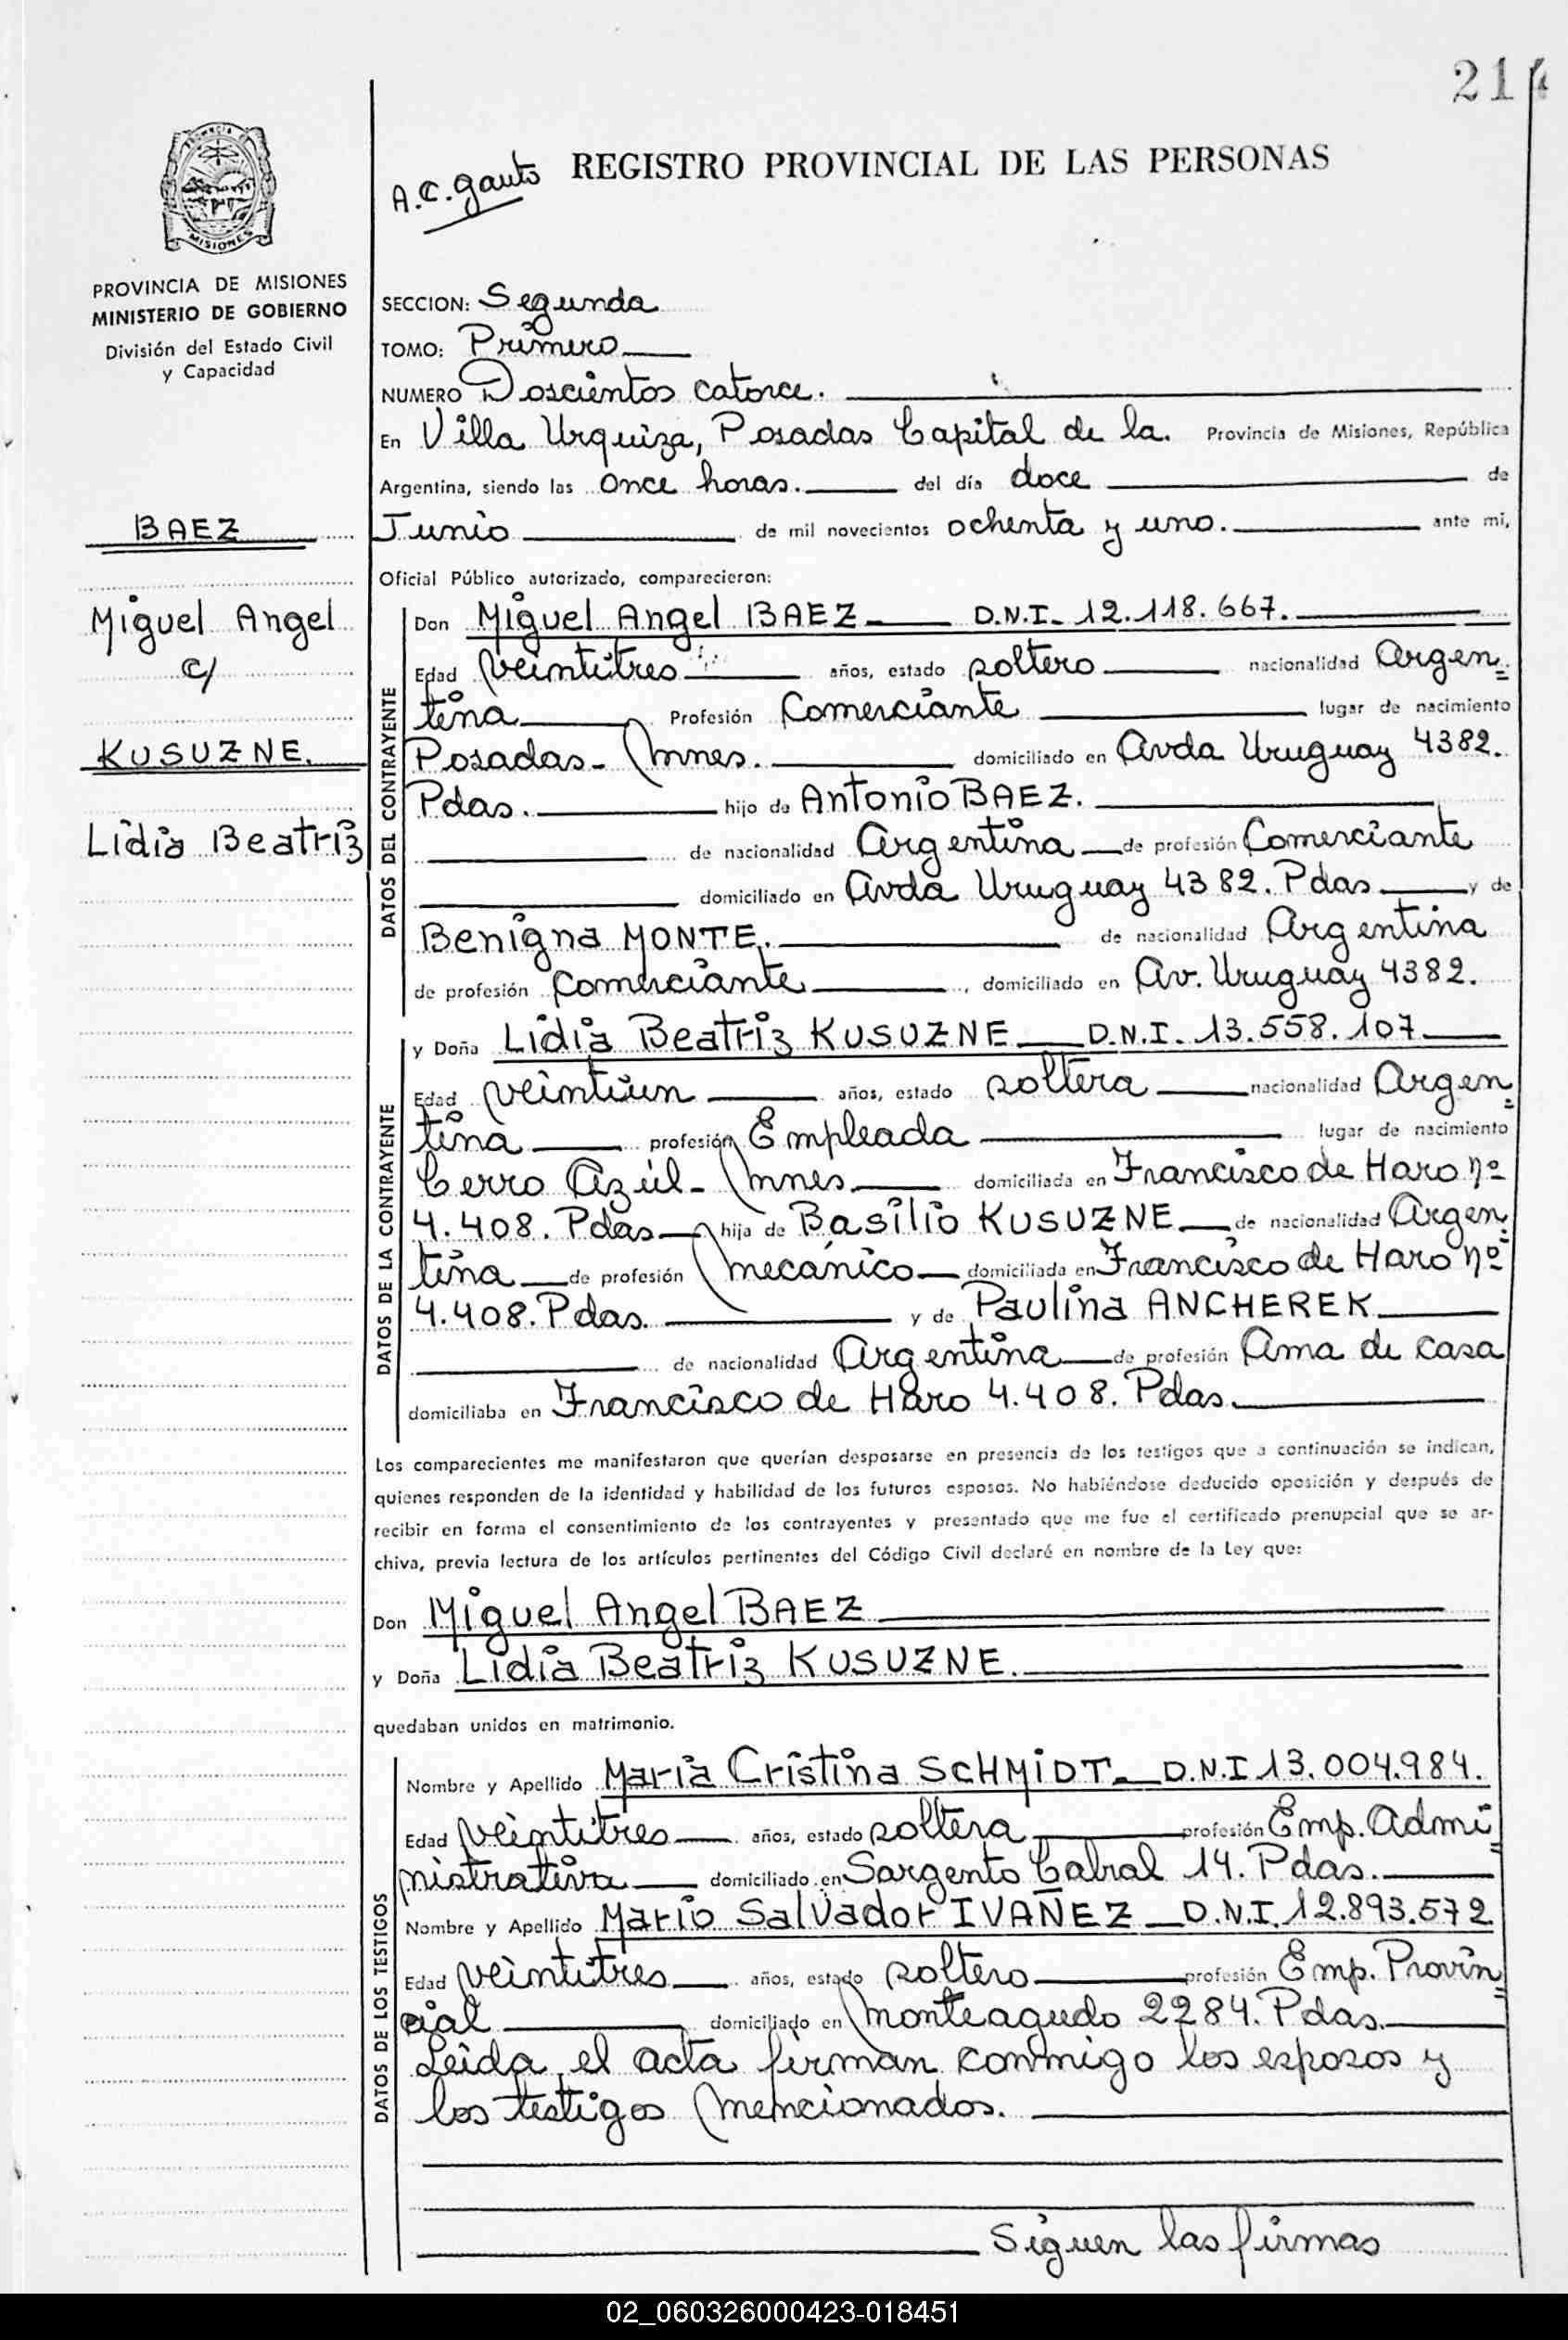 214
A.C. Gauto
REGISTRO PROVINCIAL DE LAS PERSONAS
PROVINCIA DE
MISIONES
PROVINCIA DE MISIONES
MINISTERIO DE GOBIERNO
División del Estado Civil
y Capacidad
BAEZ
Miguel Angel
c/
KUSUZNE.
Lidia Beatriz
SECCION: Segunda
TOMO: Primero
NUMERO Doscientos catorce.
En Villa Urquiza, Posadas Capital de la. Provincia de Misiones, República
Argentina, siendo las once horas. del día doce de
Junio de mil novecientos ochenta y uno. ante mi,
Oficial Público autorizado, comparecieron:
DATOS DEL CONTRAYENTE
Don Miguel Angel BAEZ D.N.I. 12.118.667.
Edad veintitres años, estado soltero nacionalidad Argen=
tina Profesión Comerciante lugar de nacimiento
Posadas- Mnes. domiciliado en Avda Uruguay 4382.
Pdas. hijo de Antonio BAEZ.
de nacionalidad Argentina de profesión Comerciante
domiciliado en Avda Uruguay 4382. Pdas y de
Benigna MONTE. de nacionalidad Argentina
de profesión Comerciante, domiciliado en Av. Uruguay 4382.
DATOS DE LA CONTRAYENTE
y Doña Lidia Beatriz KUSUZNE D.N.I. 13.558.107
Edad veintiun años, estado soltera nacionalidad Argen=
tina profesión Empleada lugar de nacimiento
Cerro Azúl- Mnes domiciliada en Francisco de Haro nº
4.408. Pdas hija de Basilio KUSUZNE de nacionalidad Argen=
tina de profesión mecánico domiciliada en Francisco de Haro nº
4.408. Pdas. y de Paulina ANCHEREK
de nacionalidad Argentina de profesión Ama de casa
domiciliaba en Francisco de Haro 4.408. Pdas.
Los comparecientes me manifestaron que querían desposarse en presencia de los testigos que a continuación se indican,
quienes responden de la identidad y habilidad de los futuros esposos. No habiéndose deducido oposición y después de
recibir en forma el consentimiento de los contrayentes y presentado que me fue el certificado prenupcial que se ar-
chiva, previa lectura de los artículos pertinentes del Código Civil declaré en nombre de la Ley que:
Don Miguel Angel BAEZ
y Doña Lidia Beatriz KUSUZNE.
quedaban unidos en matrimonio.
DATOS DE LOS TESTIGOS
Nombre y Apellido Maria Cristina SCHMIDT D.N.I 13.004.984.
Edad veintitres años, estado soltera profesión Emp. Admi=
nistrativa domiciliado en Sargento Cabral 14. Pdas.
Nombre y Apellido Mario Salvador IVAÑEZ D.N.I. 12.893.572
Edad veintitres años, estado soltero profesión Emp. Provin=
cial domiciliado en Monteagudo 2284. Pdas.
Leida el acta firman conmigo los esposos y
los testigos mencionados.
Siguen las firmas
02_060326000423-018451